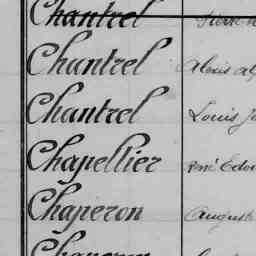 Chantrel
Chantrel Alexis
Chantrel Louis
Chapellier René
Chaperon August